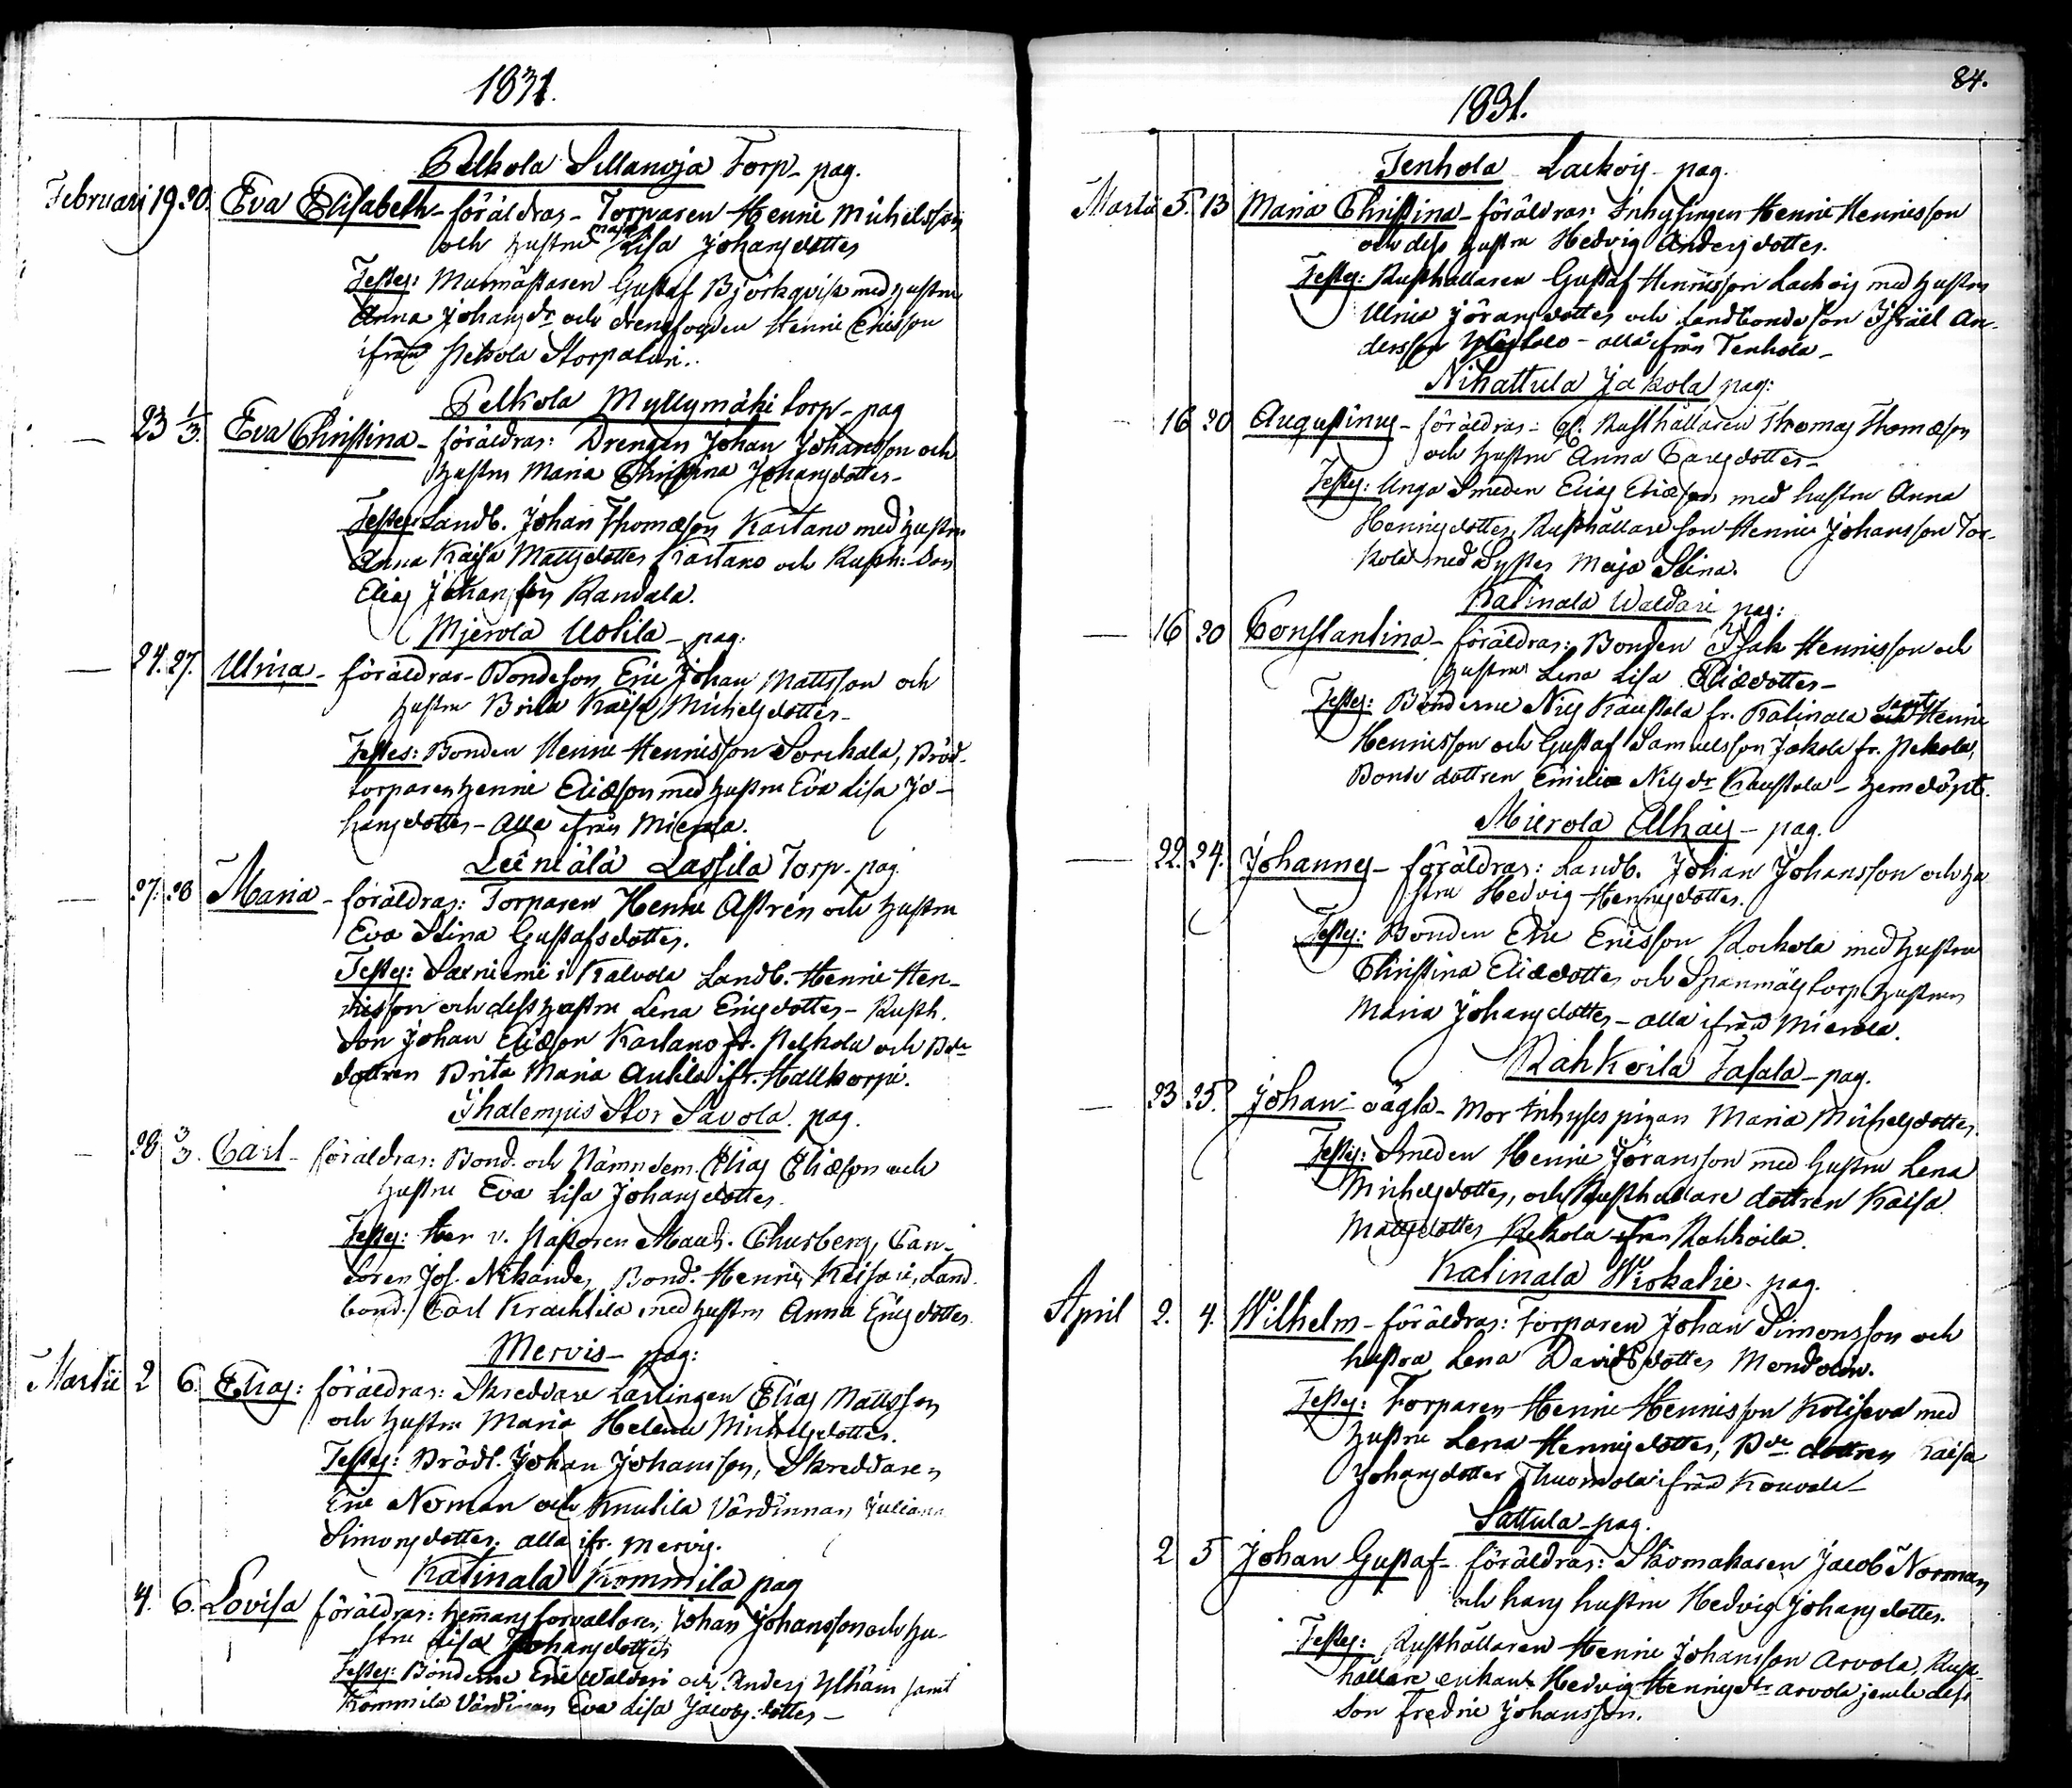 1831.
Pelkola Sillanoja Torp - pag.
Februari 19 20. Eva Elisabeth - föräldrar - Torparen Henric Michelsson
och hustru Maja Lisa Johansdotter
Testes: Murmästaren Gustaf Björkqvist med hustru
Anna Johansdr och drengfogden Henric Ericsson
ifrån Pekola Storpaturi.
Pelkola Myllymäki torp - pag
— 23 1/3. Eva Christina - föräldrar: Drengen Johan Johansson och
hustru Maria Christina Johansdotter -
Testes: Landb. Johan Thomæson Kartano med hustru
Anna Kaisa Mattsdotter Kartano och Rusth: Son
Elias Johansson Randala.
Mjerola Uotila - pag.
— 24. 27. Ulrica - föräldrar - Bondeson Eric Johan Mattsson och
hustru Brita Kaisa Michelsdotter -
Testes: Bonden Henric Hennisson Sorchala, Bröd-
torparen Henric Eliæson med hustru Eva Lisa Jo-
hansdotter - Alla ifrån Mierola.
Leiniälä Lassila Torp - pag.
— 27. 28 Maria - föräldrar: Torparen Henric Astrén och hustru
Eva Stina Gustafsdotter.
Testes: Sarniemi i Kalvola Landb. Henric Hen-
nisson och dess hustru Lena Ericsdotter - Rusth.
Son Johan Eliæson Kartano fr. Pelkola och Bde
dottren Brita Maria Anttila ifr. Hallkorpi.
Ihalempis Stor Savola. pag.
— 28 3/3. Carl - föräldrar: Bond. och Nämndem. Elias Eliæson och
hustru Eva Lisa Johansdotter.
Testes: Herr v. Pastoren Mauh. Churberg, Can-
toren Jos. Nikander, Bond. Henric Keisari, Land-
bond. Carl Krachtila med hustru Anna Ericsdotter
Mervis - pag:
Martii 2 6. Elias: föräldrar: Skreddare Lärlingen Elias Mattsson
och hustru Maria Helena Michelsdotter.
Testes: Brödt. Johan Johansson, Skreddaren
Eric Norman och Knutila Värdinnan Juliana
Simonsdotter. alla ifr. Mervis.
Katinala Kommila pag
4. 6. Lovisa föräldrar: hemmansförvaltaren Johan Johansson och hu-
stru Lisa Johansdotter
Testes: Bönderne Eric Waldari och Anders Ylhäin samt
Kommila Värdinan Eva Lisa Jacobs:dotter -
84.
1831.
Tenhola Lackois - pag.
Martii 5. 13 Maria Christina - föräldrar: Inhysingen Henric Hennisson
och dess hustru Hedvig Andersdotter.
Testes: Rusthållaren Gustaf Hennisson Lackois med hustru
Ulrica Jöransdotter och Landbonde son Israël An-
dersson - alla ifrån Tenhola -
Nihattula Jakola pag:
— 16 20 Augustinus - föräldrar - gl. Rusthållaren Thomas Thomæson
och hustru Anna Carlsdotter -
Testes: Unga Smeden Elias Eliæson med hustru Anna
Hennisdotter, Rusthållare son Henric Johansson Tor-
kola med Syster Maja Stina.
Katinala Waldari pag:
— 16 20 Constantina - föräldrar: Bonden Isak Hennisson och
hustru Lena Lisa Eliædotter -
Testes: Bönderne Nils Kaustola fr. Katinala samt Henric
Hennisson och Gustaf Samuelsson Jakola fr. Pekola,
Bonde dottren Emilia Nilsdr Kaustola - hemdöpt.
Mierola Alhais - pag.
— 22. 24. Johannes - föräldrar: Landb. Johan Johansson och hu
stru Hedvig Hennisdotter.
Testes: Bonden Eric Ericsson Rockola med hustru
Christina Eliædotter och Spanmäls torp. hustrun
Maria Johansdotter - alla ifrån Mierola.
Rahkoila Tasala - pag.
— 23 25. Johan - oägta - Mor Inhyses pigan Maria Michelsdotter.
Testes: Smeden Henric Jöransson med hustru Lena
Michelsdotter, och Rusthållare dottren Kaisa
Mattsdotter Kekola ifrån Rahkoila.
Katinala Wiskatie - pag.
April 2. 4. Wilhelm - föräldrar: Torparen Johan Simonsson och
hustru Lena Davidsdotter Mondolin.
Testes: Torparen Henric Hennisson Kotiseva med
hustru Lena Hennisdotter, Bde dottren Kaisa
Johansdotter Thuomola ifrån Kouvala -
Sattula - pag.
2 5 Johan Gustaf - föräldrar: Skomakaren Jacob Norman
och hans hustru Hedvig Johansdotter.
Testes: Rusthållaren Henric Johansson Arvola, Rust-
hållare enkan Hedvig Hennisdr Arvola jemte dess
Son Fredric Johansson.